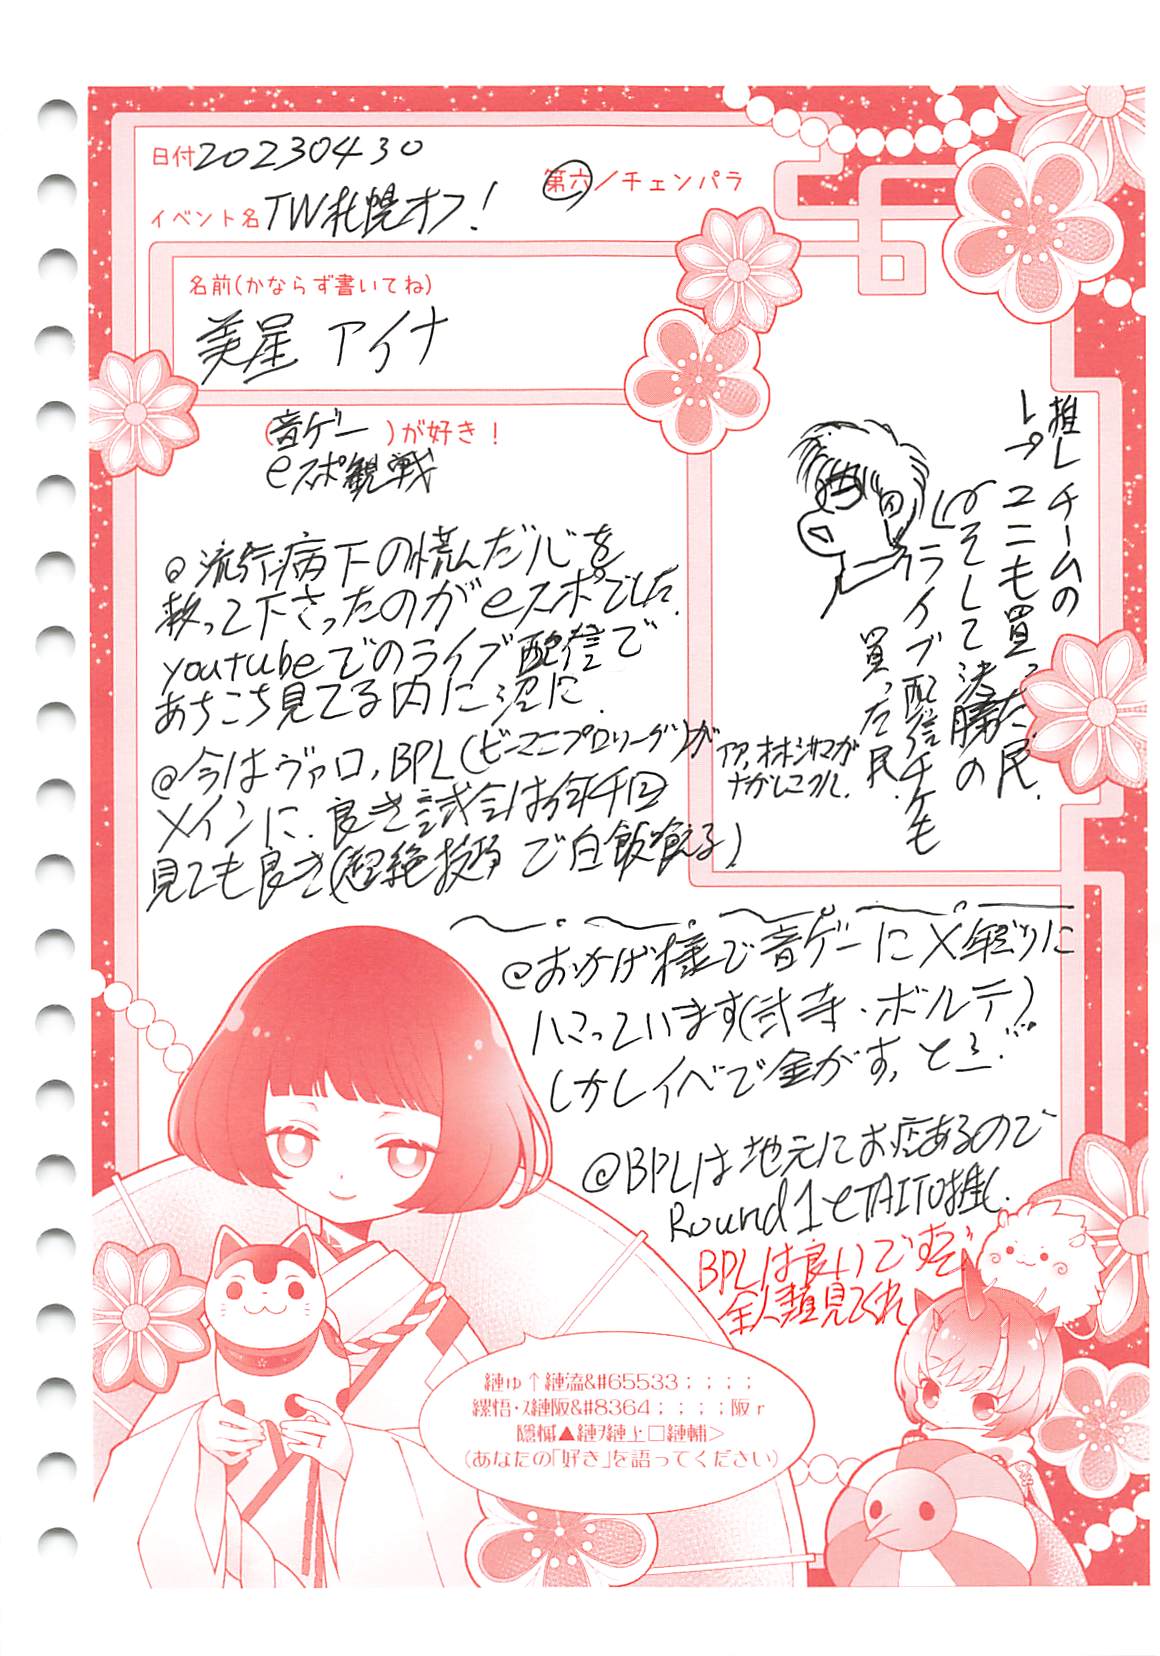 日付 20230430
第六/チェンパラ
イベント名 TW札幌オフ!
名前(かならず書いてね)
美星 アイナ
(音ゲー)が好き!
eスポ観戦
@流行病下の慌んだ心を
救って下さったのがeスポでした.
youtubeでのライブ配信で
あちこち見てる内に沼に.
@今はヴァロ,BPL(ビーマニプロリーグ)が
メインに.良き試合は何年千回
見ても良き(超絶技巧で白飯喰える)
推しチームの
ユニも買った民.
そして決勝の
ライブ配信チケも
買った民.
アァ,オホシサマが
ナガレこうし.
@おかげ様で音ゲーにメ年ぶりに
ハマっています(弐寺・ボルテ)
しかしイベで金がす,とこ…
@BPLは地元にお店あるので
Round1とTAITO推し.
BPLは良いですぞ
全人類見てくれ
縺ゅ↑縺溘&#65533;;;;;
縲悟・ｽ縺阪&#8364;;;;;阪ｒ
隱槭▲縺ｦ縺上□縺輔>
(あなたの「好き」を語ってください)